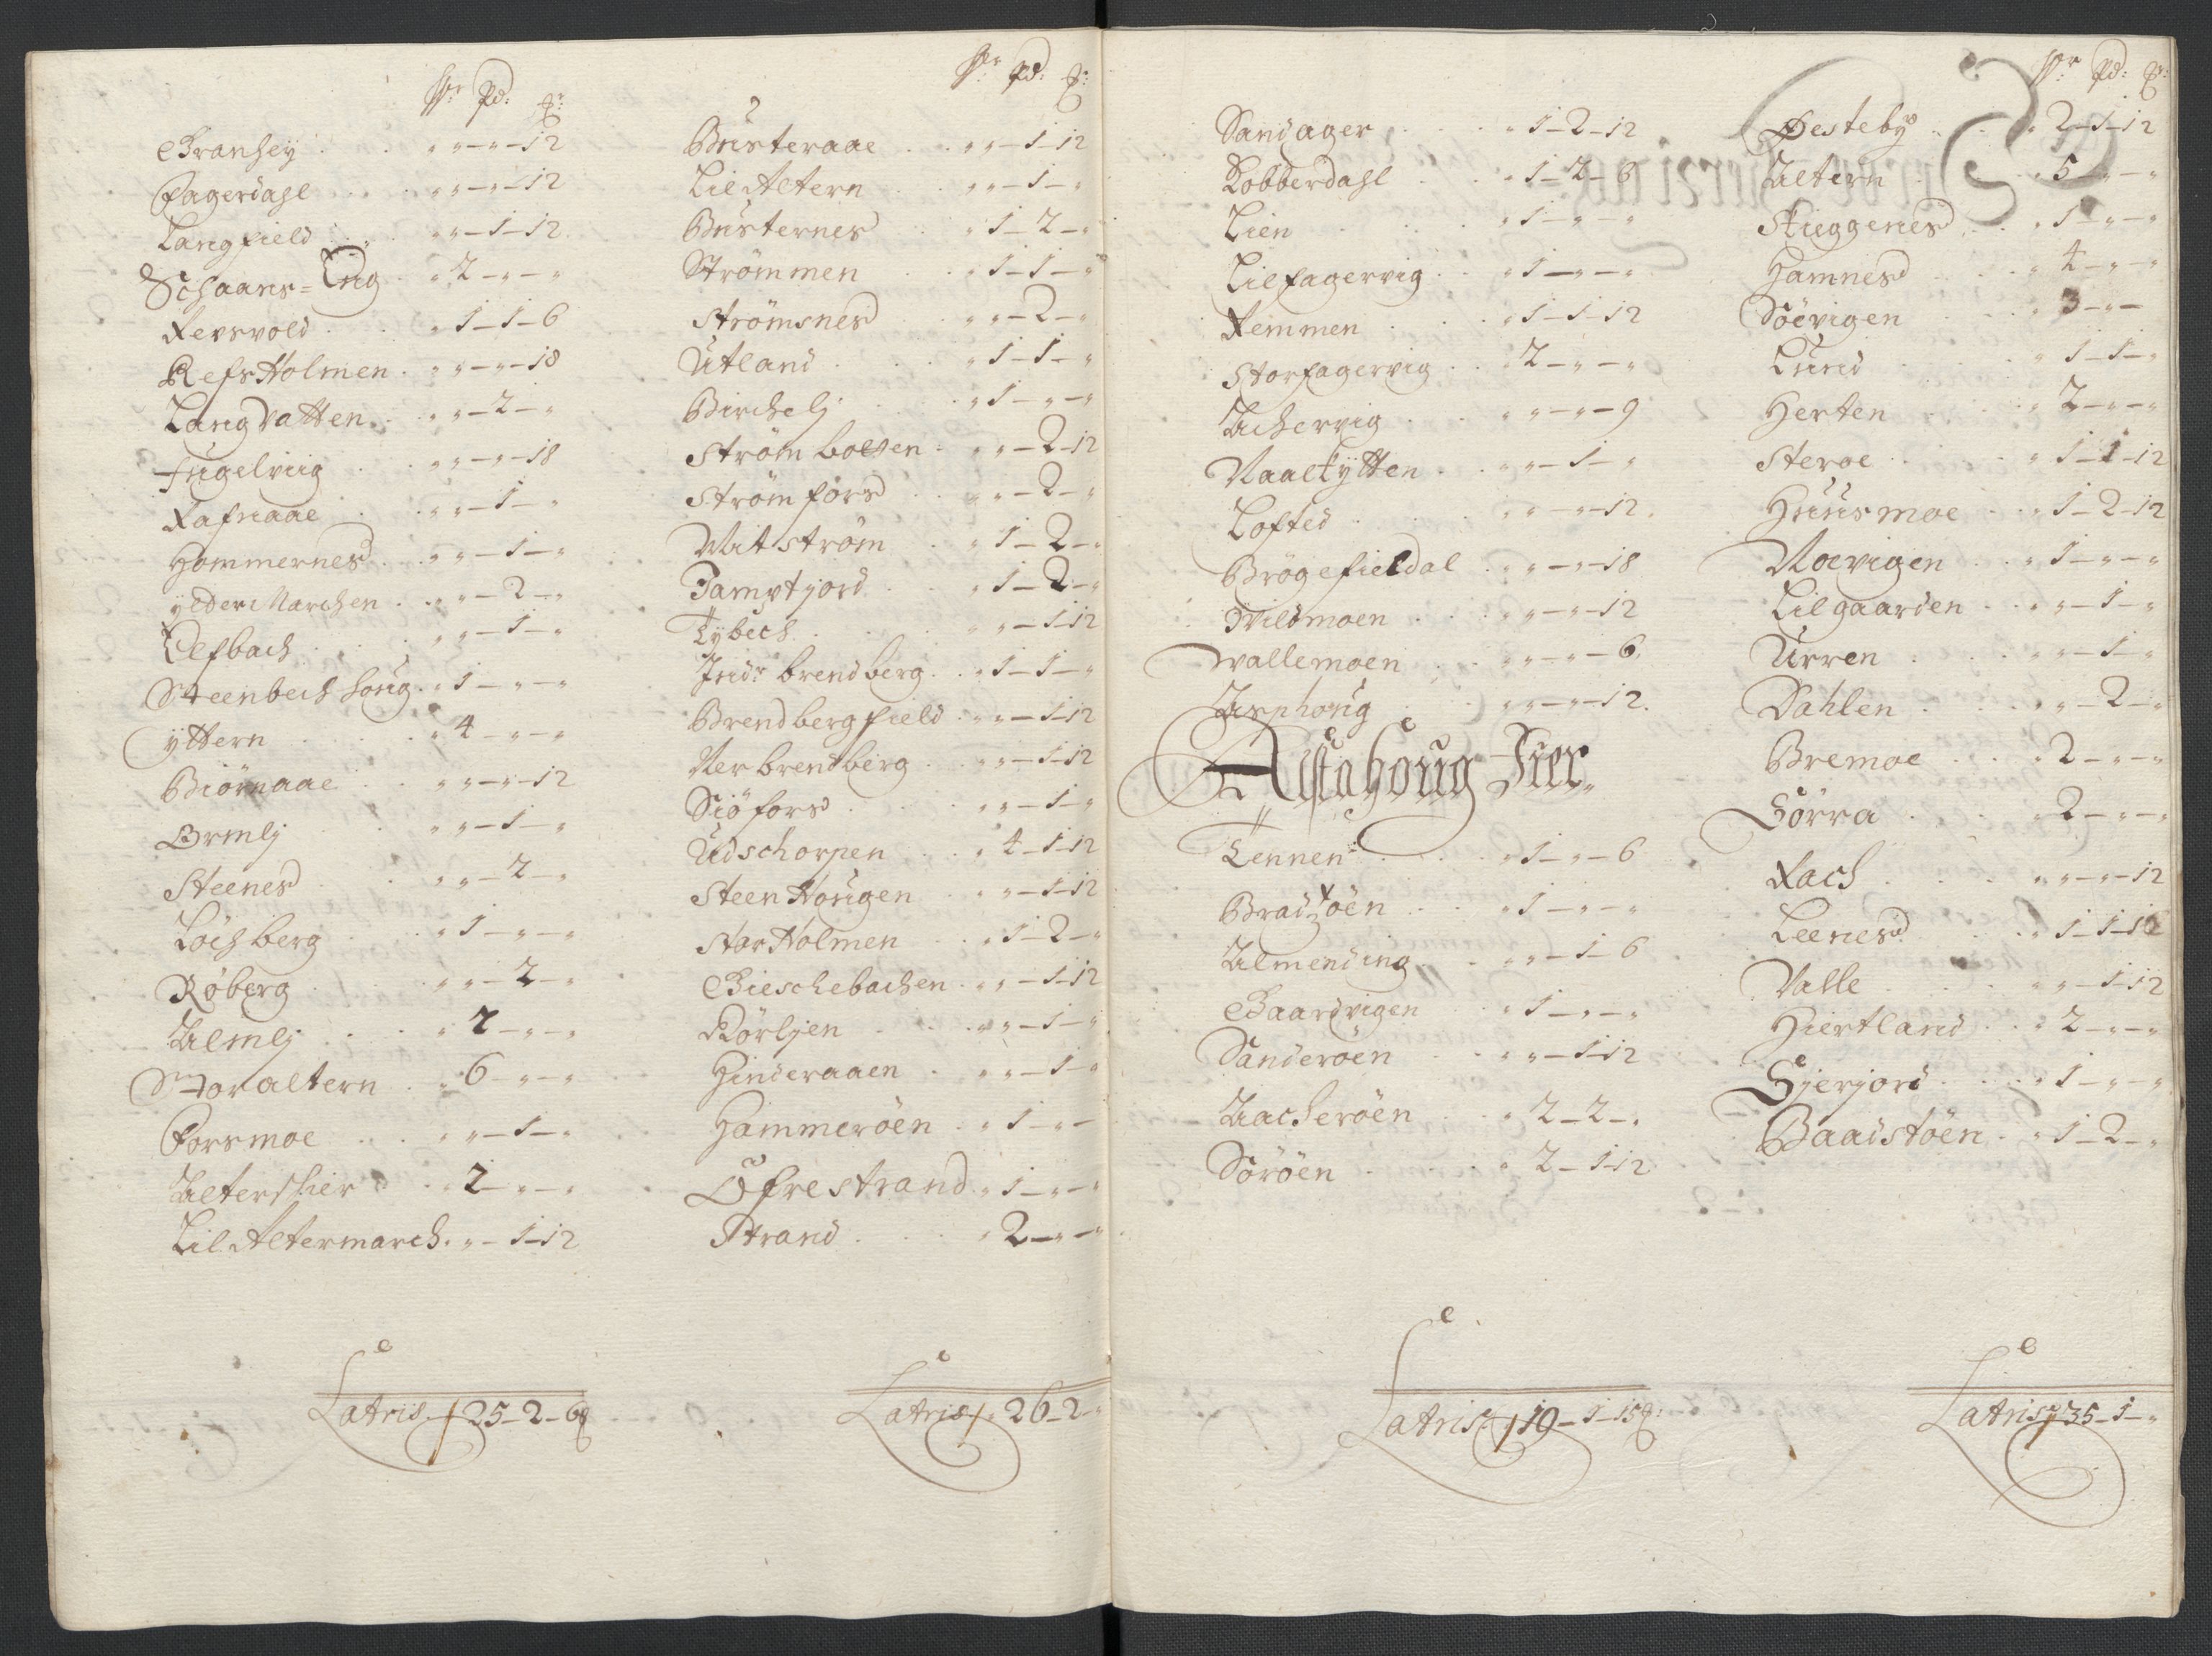 Spr Pd: ₰:
Granhey „-„-12
Fagerdahl „-„-12
Langfield „-1-12
Schaans=Eng 2-„-„
Revsvold 1-1-6
RefsHolmen „-„-18
Langvatten „-2-„
Fugelviig „-„-18
Rafnaae „-1-„
Hommernes „-1-„
ylder Marchen „-2-„
Elfbach „-1-„
Steenbechhoug 1-„-„
yttern 4-„-„
Biörnaae „-„-12
Ormlj „-1-„
Steenes „-2-„
Löchberg 1-„-„
Røberg „-2-„
Almlj 2-„-„
Storaltern 6-„-„
Forsmoe „-1-„
Alterschier 2-„-„
Lil Altermarch „-1-12
Latris 25-2-6
Spr Pd: ₰:
Busteraae „-1-12
Lil Altern „-1-„
Busternes 1-2-„
Strømmen 1-1-„
Strømsnes „-2-„
Utland 1-1-„
Birchelj 1-„-„
Strømboesen „-2-12
Strømfors „-2-„
Mitstrøm 1-2-„
Tamptjord 1-2-„
Tybech „-1-12
Indr brendberg 1-1-„
Brendbergfield „-1-12
Nerbrendberg „-1-12
Siöfors „-1-„
Udschorpen 4-1-12
SteenHougen „-1-12
StorHolmen 1-2-„
Gieschebachen „-1-12
Rörljen „-1-„
Hinderaaen „-1-„
Hammeröen 1-„-
Öfrestrand 1-„-„
Strand 2-„-„
Latris 26-2-„
Sandager 1-2-12
Lobberdahl 1-2-6
Lien 1-„-„
Lilfagervig 1-„-„
Remmen 1-1-12
Storfagervig 2-„-„
Achervig „-„-9
Naaetytten „-1-„
Lofted „-„-12
Brögefieldal „-„-18
Wildmoen „-„-12
Wallemoen „-„-6
Asphoug „-„-12
Alstahoug Fier
Tennen 1-„-6
Bradzöen 1-„-„
Almending „-1-6
Gaardvigen 1-„-„
Sanderöen „-1-12
Aacheröen 2-2-„
Soröen 2-1-12
Latris 19-1-15₰:
Spr Pd: ₰:
Østebÿ 2-1-12
Altern 5-„-„
Stiggenes 1-„-„
Hamnes 4-„-„
Söevigen 3-„-
Lund 1-1-„
Herten 2-„-„
Steroe 1-1-12
Huusmoe 1-2-12
Noevigen 1-„-„
Lilgaarden „-1-„
Urren „-1-„
Dahlen „-2-„
Bremoe 2-„-„
Sörra 2-„-„
Rach „-„-12
Leenes 1-1-12
Valle „-1-12
Hiertland 2-„-„
Gjerjord 1-„-„
Baadstöen 1-2-„
Latris 35-1-„